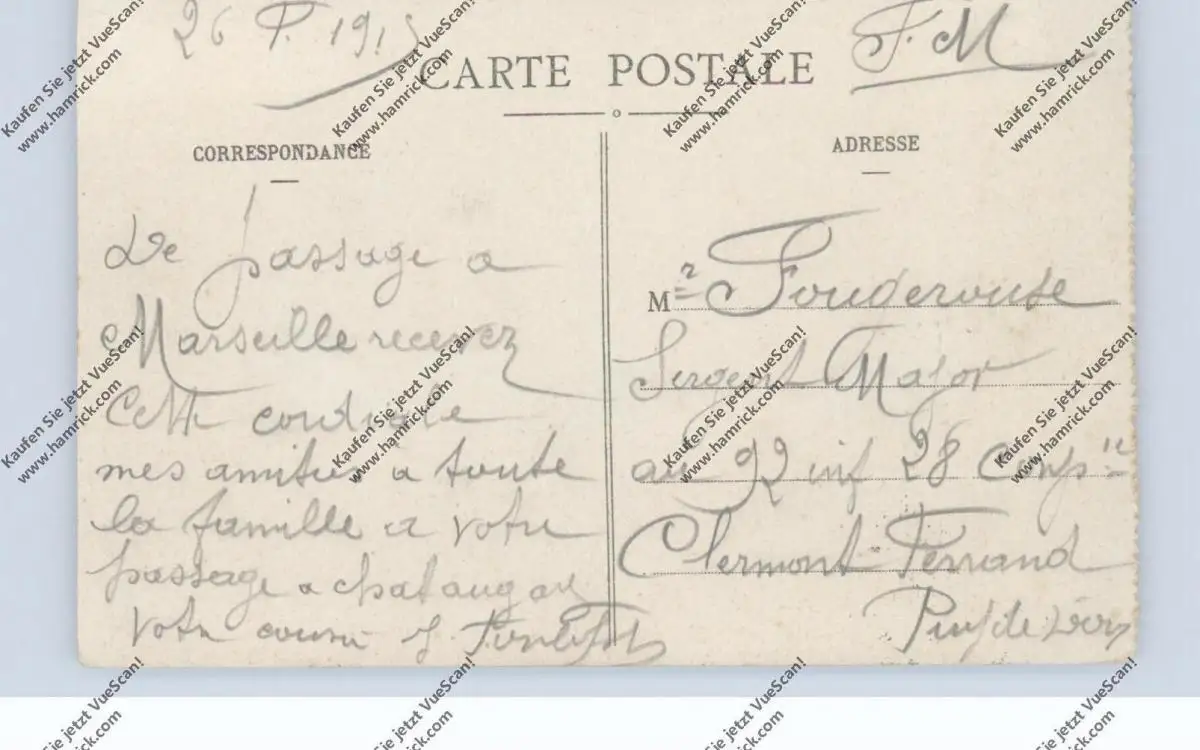 26 F. 1915
F. M
CARTE POSTALE
CORRESPONDANCE
ADRESSE
De passage a
Marseille recevez
Cette cordiale
mes amities a toute
la famille a votre
passage a
Votre cousin J.
Mr Fouderouse
Sergent Major
au 92 inf 28 Comp ie
Clermont-Ferrand
Puy de Dom
Kaufen Sie jetzt VueScan!
www.hamrick.com